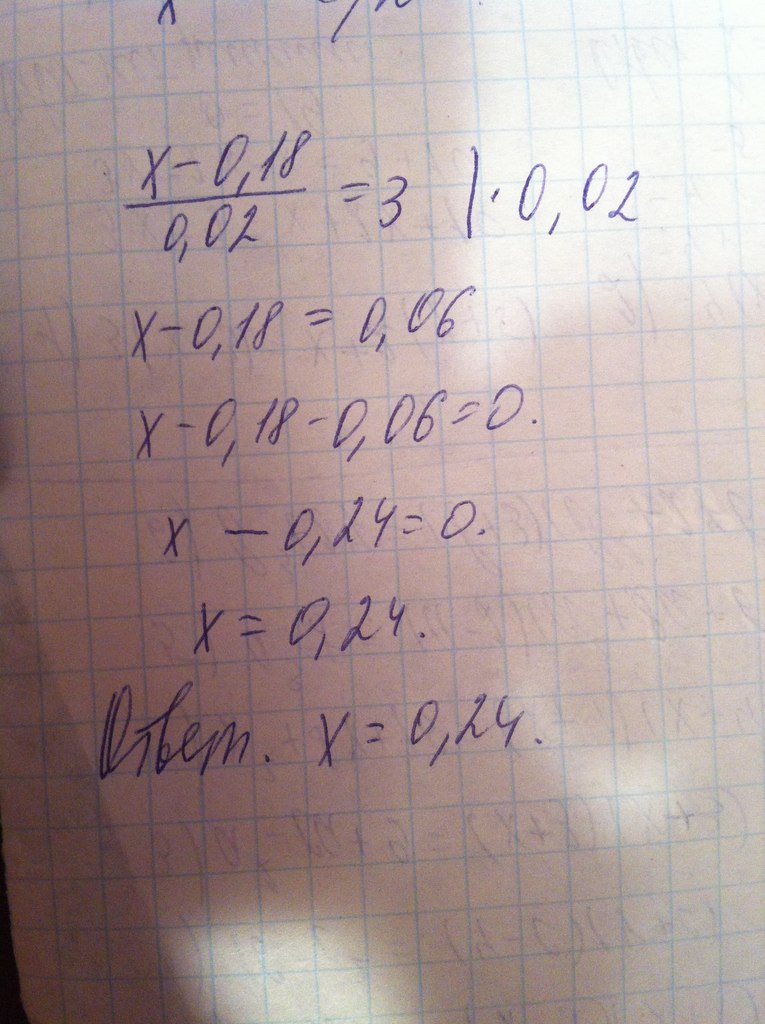 x-0,18
/ 0,02 = 3 |·0,02
x-0,18 = 0,06
x-0,18-0,06=0.
x - 0,24=0.
x = 0,24.
Ответ. x = 0,24.